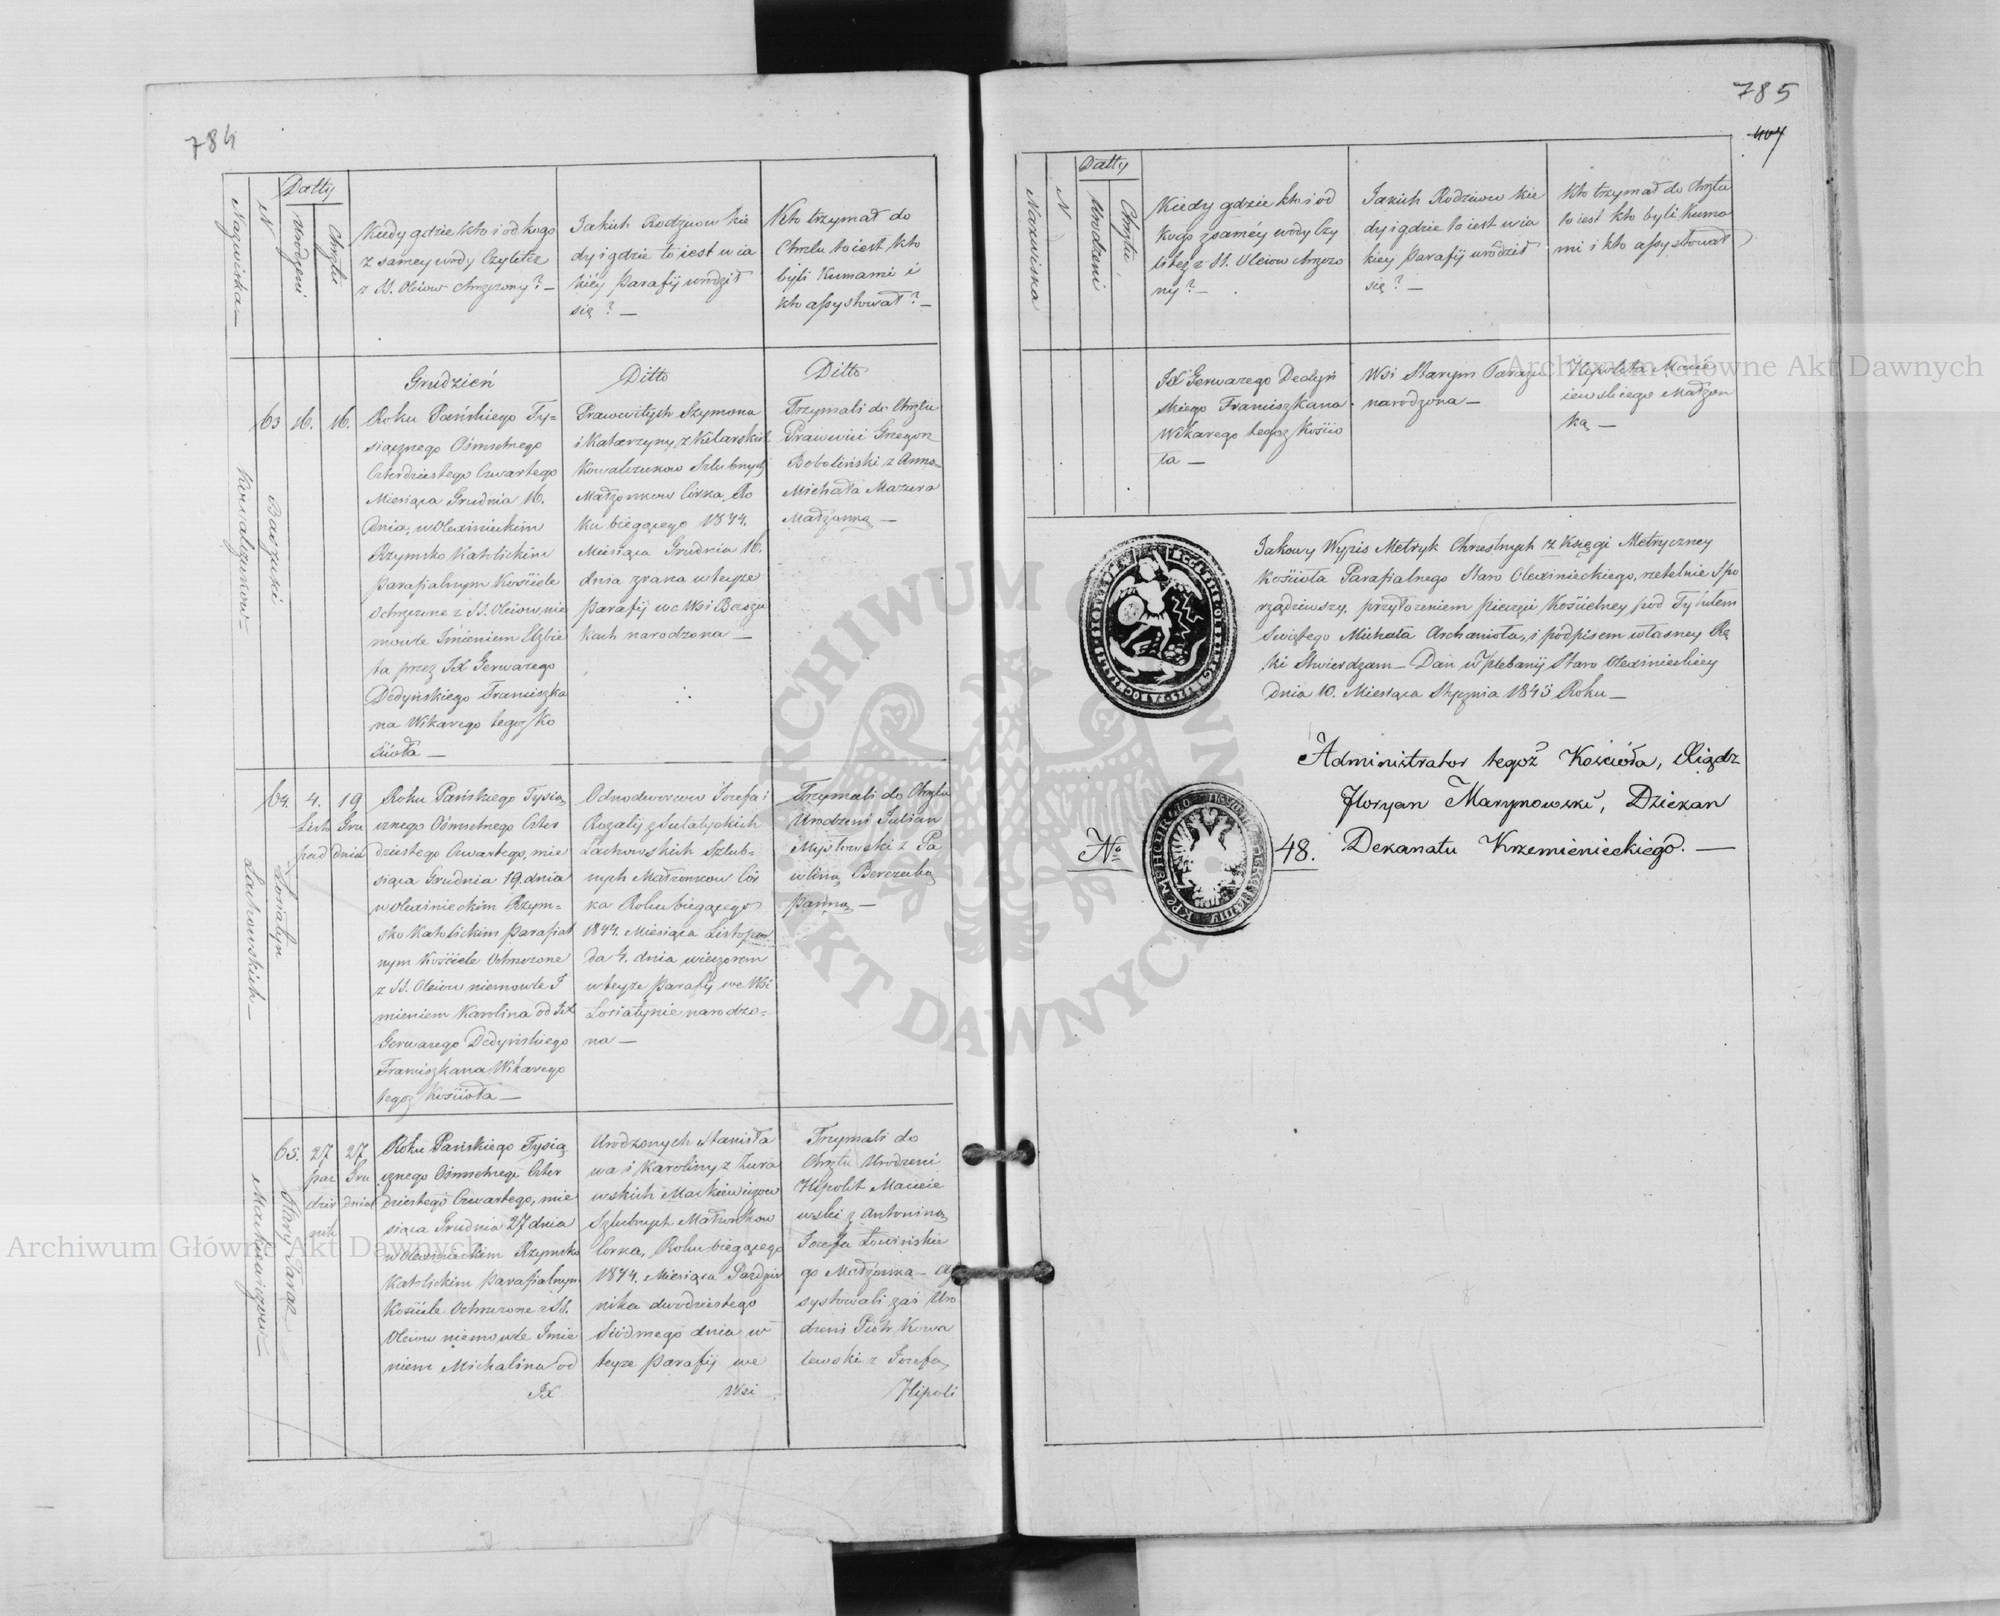 784
Datty
Nazwiska
N
Urodzeni
Chrztu
Kiedy gdzie kto i od kogo
z samey wody Czyli też
z SS. Oleiow chrzczony? —
Jakich Rodziców kie
dy i gdzie to iest w ia
kiéy Parafij urodził
się? —
Kto trzymał do
Chrztu to iest kto
byli Kumami i
kto assystował? —
Kowalczukow
Baszuki
63
16.
16.
Grudzień
Roku Pańskiego Ty-
siącznego Ośmsetnego
Czterdziestego Czwartego
Miesiąca Grudnia 16.
Dnia, w Olexinieckim
Rzymsko Katolickim
Parafialnym Kościele
Ochrzczone z SS. Oleiow nie
mowle Imieniem Elżbie
ta przez JX Gerwazego
Dedyńskiego Franciszka
na Wikarego tegoż Ko
ścioła —
Ditto
Prawowitych Szymona
i Katarzyny z Kitarskich
Kowalczukow Szlubnych
Małżonkow Córka, Ro
ku biegącego 1844.
Miesiąca Grudnia 16.
dnia zrana w teyże
Parafij we Wsi Baszu
kach narodzona —
Ditto
Trzymali do Chrztu
Prawowici Grzegorz
Boboliński z Anną
Michała Mazura
Małżonką —
Lachowskich —
Łosiatyn
64.
4.
List
pad
19
Gru
dnia
Roku Pańskiego Tysią
cznego Ośmsetnego Czter
dziestego Czwartego, mie
siąca Grudnia 19. dnia
w Olexinieckim Rzym-
sko Katolickim Parafial
nym Kościele Ochrzczone
z SS. Oleiow niemowle I
mieniem Karolina od JX
Gerwazego Dedyńskiego
Franciszkana Wikarego
tegoż Kościoła —
Odnodworcow Jozefa i
Rozalij z Sulatyckich
Lachowskich Szlub-
nych Małżonkow Cór
ka Roku biegącego
1844. Miesiąca Listopa
da 4. dnia wieczorem
w teyże Parafij we Wsi
Łosiatynie narodzo-
na —
Trzymali do Chrztu
Urodzeni Julian
Mysłowski z Pa
uliną Berezubą
Panną —
Mackiewiczowie —
Stary Taraż
65.
27
paz
dzier
nik
27
Gru
dnia
Roku Pańskiego Tysią
cznego Ośmsetnego Czter
dziestego Czwartego, mie
siąca Grudnia 27 dnia
w Olexinieckim Rzymsko
Katolickim Parafialnym
Kościele Ochrzczone z SS.
Oleiow niemowle Imie
niem Michalina od
JX
Urodzonych Stanisła
wa i Karoliny z Żura
wskich Mackiewiczow
Szlubnych Małżonkow
Corka, Roku biegącego
1844. Miesiąca Pazdzier
nika dwodziestego
Siódmego dnia w
teyże Parafij we
Wsi
Trzymali do
Chrztu Urodzeni
Hipolit Macieie
wski z Antoniną
Jozefa Łowińskie
go Małżonką — As
systowali zaś Uro
dzeni Piotr Kowa
lewski z Jozefą
Hipoli
785
407
Datty
Nazwiska
N
Urodzeni
Chrztu
Kiedy gdzie kto i od
kogo z samey wody Czy
li też z SS. Oleiow chrzczo
ny? —
Jakich Rodziców kie
dy i gdzie to iest w ia
kiey Parafij urodził
się? —
Kto trzymał do Chrztu
to iest kto byli Kuma
mi i kto assystował
JX Gerwazego Dedyń
skiego Franciszkana
Wikarego tegoż Kościo
ła —
Wsi Starym Tarażu
narodzona —
Hipolita Macie
iewskiego Małżon
ką —
Jakowy Wypis Metryk Chrzestnych z Księgi Metryczney
Kościoła Parafialnego Staro Olexinieckiego, rzetelnie Spo
rządziwszy, przyłożeniem pieczęci Kościelney pod Tytułem
Świętego Michała Archanioła, i podpisem własney Rę
ki Stwierdzam — Dan w Plebanij Staro Olexinieckiey
Dnia 10. Miesiąca Stycznia 1845 Roku —
Administrator tegoż Kościoła, Xiądz
Floryan Marynowski, Dziekan
Dekanatu Krzemienieckiego. —
No 48.
Archiwum Główne Akt Dawnych
Archiwum Główne Akt Dawnych
ARCHIWUM GŁÓWNE AKT DAWNYCH